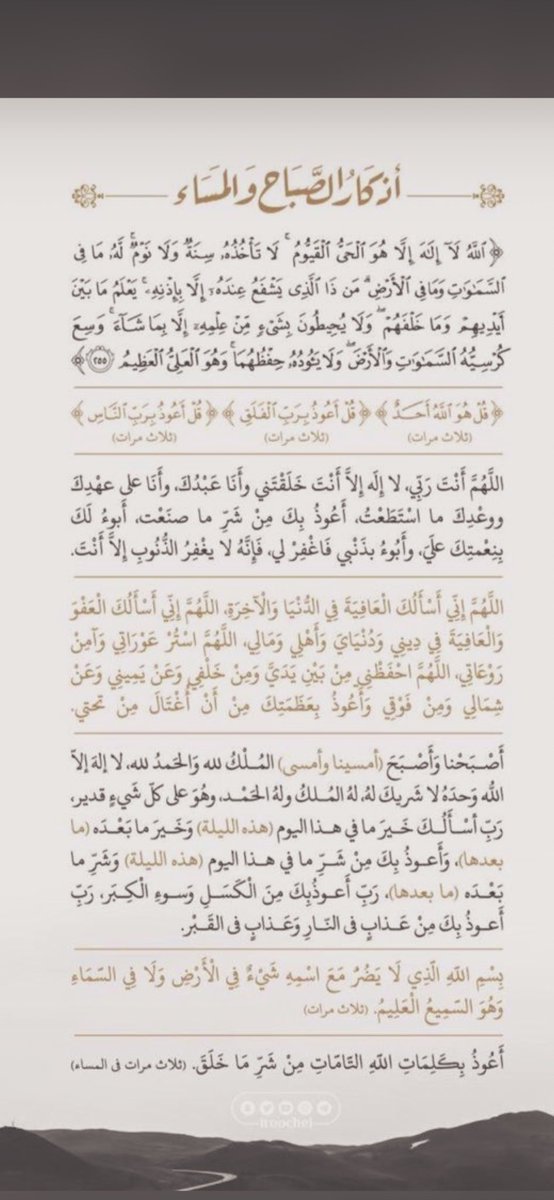 أذكار الصَّبَاحِ وَالمَسَاء
﴿ ٱللَّهُ لَآ إِلَٰهَ إِلَّا هُوَ ٱلْحَىُّ ٱلْقَيُّومُ ۚ لَا تَأْخُذُهُۥ سِنَةٌ وَلَا نَوْمٌ ۚ لَّهُۥ مَا فِى
ٱلسَّمَٰوَٰتِ وَمَا فِى ٱلْأَرْضِ ۗ مَن ذَا ٱلَّذِى يَشْفَعُ عِندَهُۥٓ إِلَّا بِإِذْنِهِۦ ۚ يَعْلَمُ مَا بَيْنَ
أَيْدِيهِمْ وَمَا خَلْفَهُمْ ۖ وَلَا يُحِيطُونَ بِشَىْءٍ مِّنْ عِلْمِهِۦٓ إِلَّا بِمَا شَآءَ ۚ وَسِعَ
كُرْسِيُّهُ ٱلسَّمَٰوَٰتِ وَٱلْأَرْضَ ۖ وَلَا يَـُٔودُهُۥ حِفْظُهُمَا ۚ وَهُوَ ٱلْعَلِىُّ ٱلْعَظِيمُ ٢٥٥ ﴾
﴿ قُلْ هُوَ ٱللَّهُ أَحَدٌ ﴾ ﴿ قُلْ أَعُوذُ بِرَبِّ ٱلْفَلَقِ ﴾ ﴿ قُلْ أَعُوذُ بِرَبِّ ٱلنَّاسِ ﴾
(ثلاث مرات) (ثلاث مرات) (ثلاث مرات)
اللَّهُمَّ أَنْتَ رَبِّي، لا إِلَه إِلاَّ أَنْتَ خَلَقْتَني وأَنَا عَبْدُكَ، وأَنَا على عهْدِكَ
ووعْدِكَ ما اسْتَطَعْتُ، أَعُوذُ بِكَ مِنْ شَرِّ ما صنَعْت، أَبوءُ لَكَ
بِنِعْمتِكَ علَيَّ، وأَبُوءُ بذَنْبي فَاغْفِرْ لي، فَإِنَّهُ لا يغْفِرُ الذُّنُوبِ إِلاَّ أَنْتَ.
اللَّهُمَّ إِنِّي أَسْأَلُكَ الْعَافِيَةَ فِي الدُّنْيَا وَالْآخِرَةِ، اللَّهُمَّ إِنِّي أَسْأَلُكَ الْعَفْوَ
وَالْعَافِيَةَ فِي دِينِي وَدُنْيَايَ وَأَهْلِي وَمَالِي، اللَّهُمَّ اسْتُرْ عَوْرَاتِي وَآمِنْ
رَوْعَاتِي، اللَّهُمَّ احْفَظْنِي مِنْ بَيْنِ يَدَيَّ وَمِنْ خَلْفِي وَعَنْ يَمِينِي وَعَنْ
شِمَالِي وَمِنْ فَوْقِي وَأَعُوذُ بِعَظَمَتِكَ مِنْ أَنْ أُغْتَالَ مِنْ تحتي.
أَصْـبَحْنا وَأَصْـبَحَ (أمسينا وأمسى) المُـلْكُ لله وَالحَمدُ لله، لا إلهَ إلاّ
الله وَحدَهُ لا شَريكَ لهُ، لهُ المُـلكُ ولهُ الحَمْـد، وهُوَ على كلّ شَيءٍ قدير،
رَبِّ أسْـأَلُـكَ خَـيرَ ما في هـذا اليوم (هذه الليلة) وَخَـيرَ ما بَعْـدَه (ما
بعدها)، وَأَعـوذُ بِكَ مِنْ شَـرِّ ما في هـذا اليوم (هذه الليلة) وَشَرِّ ما
بَعْـدَه (ما بعدها)، رَبِّ أَعـوذُبِكَ مِنَ الْكَسَـلِ وَسـوءِ الْكِبَـر، رَبِّ
أَعـوذُ بِكَ مِنْ عَـذابٍ في النّـارِ وَعَـذابٍ في القَـبْر.
بِسْمِ اللَّهِ الَّذِي لَا يَضُرُّ مَعَ اسْمِهِ شَيْءٌ فِي الْأَرْضِ وَلَا فِي السَّمَاءِ
وَهُوَ السَّمِيعُ الْعَلِيمُ. (ثلاث مرات)
أَعُوذُ بِكَلِمَاتِ اللَّهِ التَّامَّاتِ مِنْ شَرِّ مَا خَلَقَ. (ثلاث مرات في المساء)